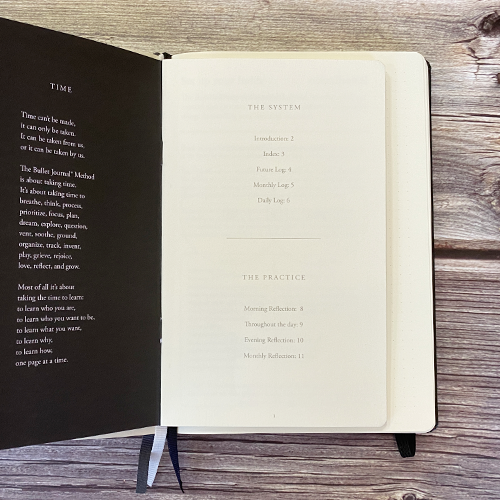 TIME
Time can't be made,
it can only be taken.
It can be taken from us,
or it can be taken by us.
The Bullet Journal™ Method
is about taking time.
It's about taking time to
breathe, think, process,
prioritize, focus, plan,
dream, explore, question,
vent, soothe, ground,
organize, track, invent,
play, grieve, rejoice,
love, reflect, and grow.
Most of all it's about
taking the time to learn:
to learn who you are,
to learn who you want to be,
to learn what you want,
to learn why,
to learn how,
one page at a time.
THE SYSTEM
Introduction: 2
Index: 3
Future Log: 4
Monthly Log: 5
Daily Log: 6
THE PRACTICE
Morning Reflection: 8
Throughout the day: 9
Evening Reflection: 10
Monthly Reflection: 11